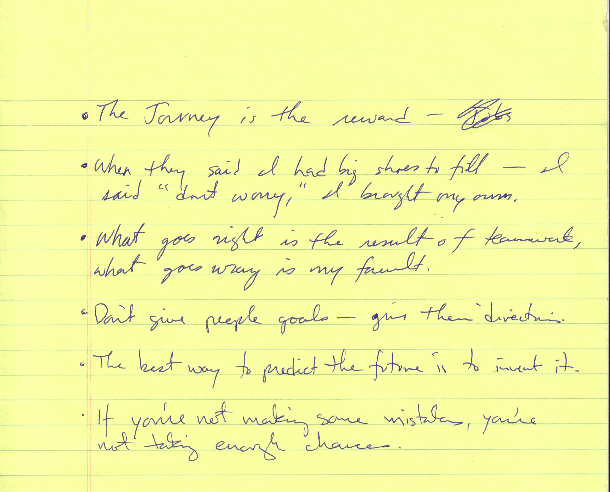 • The Journey is the reward –
• When they said I had big shoes to fill – I
said "don't worry," I brought my own.
• What goes right is the result of teamwork,
what goes wrong is my fault.
• Don't give people goals – give them directions.
• The best way to predict the future is to invent it.
• If you're not making some mistakes, you're
not taking enough chances.